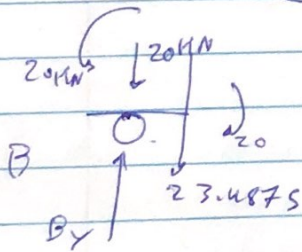 20KN
20KN
20
B
23.4875
By